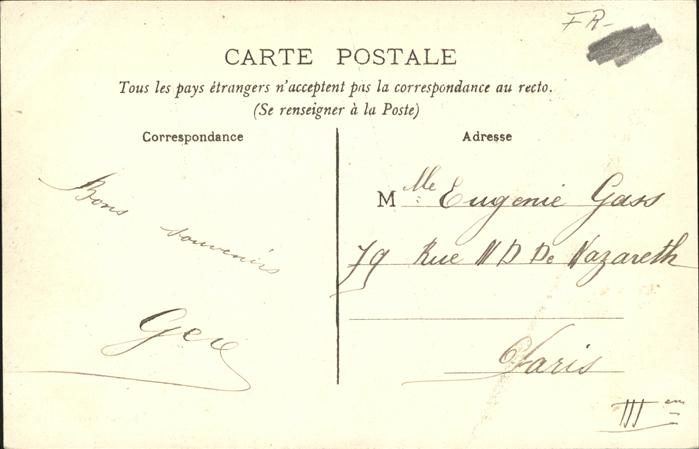 FR-
CARTE POSTALE
Tous les pays étrangers n'acceptent pas la correspondance au recto.
(Se renseigner à la Poste)
Correspondance
Bons
souvenirs
Adresse
M Mlle Eugenie Gass
79 Rue N D De Nazareth
Paris
III em